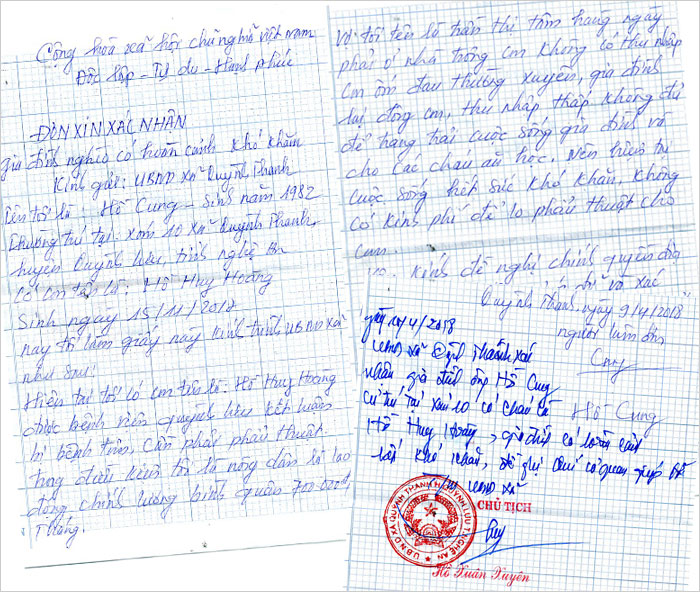 Cộng hoà xã hội chủ nghĩa việt nam
Độc lập - Tự do - Hạnh phúc
ĐƠN XIN XÁC NHẬN
gia đình nghĩa có hoàn cảnh khó khăn
Kính gửi: UBND xã Quỳnh Thanh
Tên tôi là: Hồ Cung - Sinh năm 1982
Thường trú tại: xóm 10 xã Quỳnh Thanh
huyện Quỳnh lưu, tỉnh nghệ An
Có con tên là: Hồ Huy Hoàng
Sinh ngày 15/11/2017
nay tôi làm giấy này kính trình UBND xã
như sau:
Hiện tại tôi có con tên là: Hồ Huy Hoàng
được bệnh viện quỳnh lưu kết luận
bị bệnh tim, Cần phải phẫu thuật.
là nông dân lao
động chính lương bình quân 700.000đ
1 tháng.
Vợ tôi tên là trần thị tâm hàng ngày
phải ở nhà trông con không có thu nhập
Con ốm đau thường xuyên, gia đình
lại đông con, thu nhập thấp không đủ
để trang trải cuộc sống gia đình và
cho các cháu ăn học. nên hiện tại
cuộc sống hết sức khó khăn, không
có kinh phí để lo phẫu thuật cho
con.
Kính đề nghị chính quyền
xác
Quỳnh Thanh, ngày 9/4/2018
người làm đơn
Cung
Hồ Cung
ngày 10/4/2018
UBND xã Quỳnh Thanh xác
nhận gia đình ông Hồ Cung
cư trú tại xóm 10 có cháu
Hồ Huy Hoàng, gia đình có hoàn cảnh
rất khó khăn, đề nghị các cơ quan giúp đỡ
T/M UBND xã
CHỦ TỊCH
U.B.N.D XÃ QUỲNH THANH H. QUỲNH LƯU T. NGHỆ AN
Hồ Xuân Xuyên